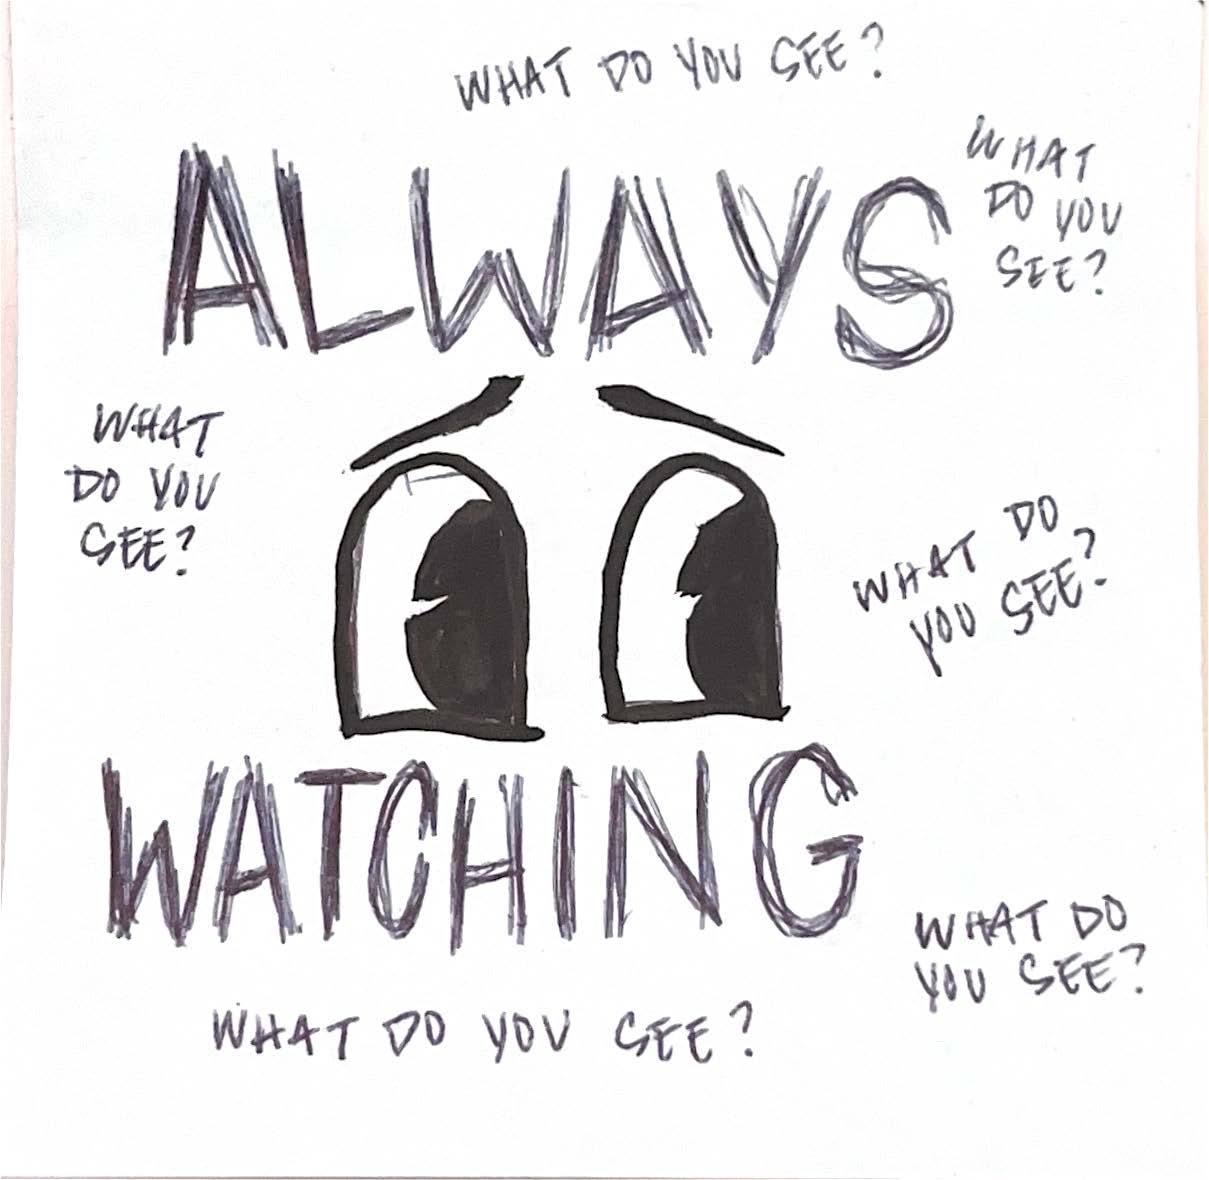 WHAT DO YOU SEE?
WHAT
DO YOU
SEE?
ALWAYS
WHAT
DO YOU
SEE?
WHAT DO
YOU SEE?
WATCHING
WHAT DO
YOU SEE?
WHAT DO YOU SEE?